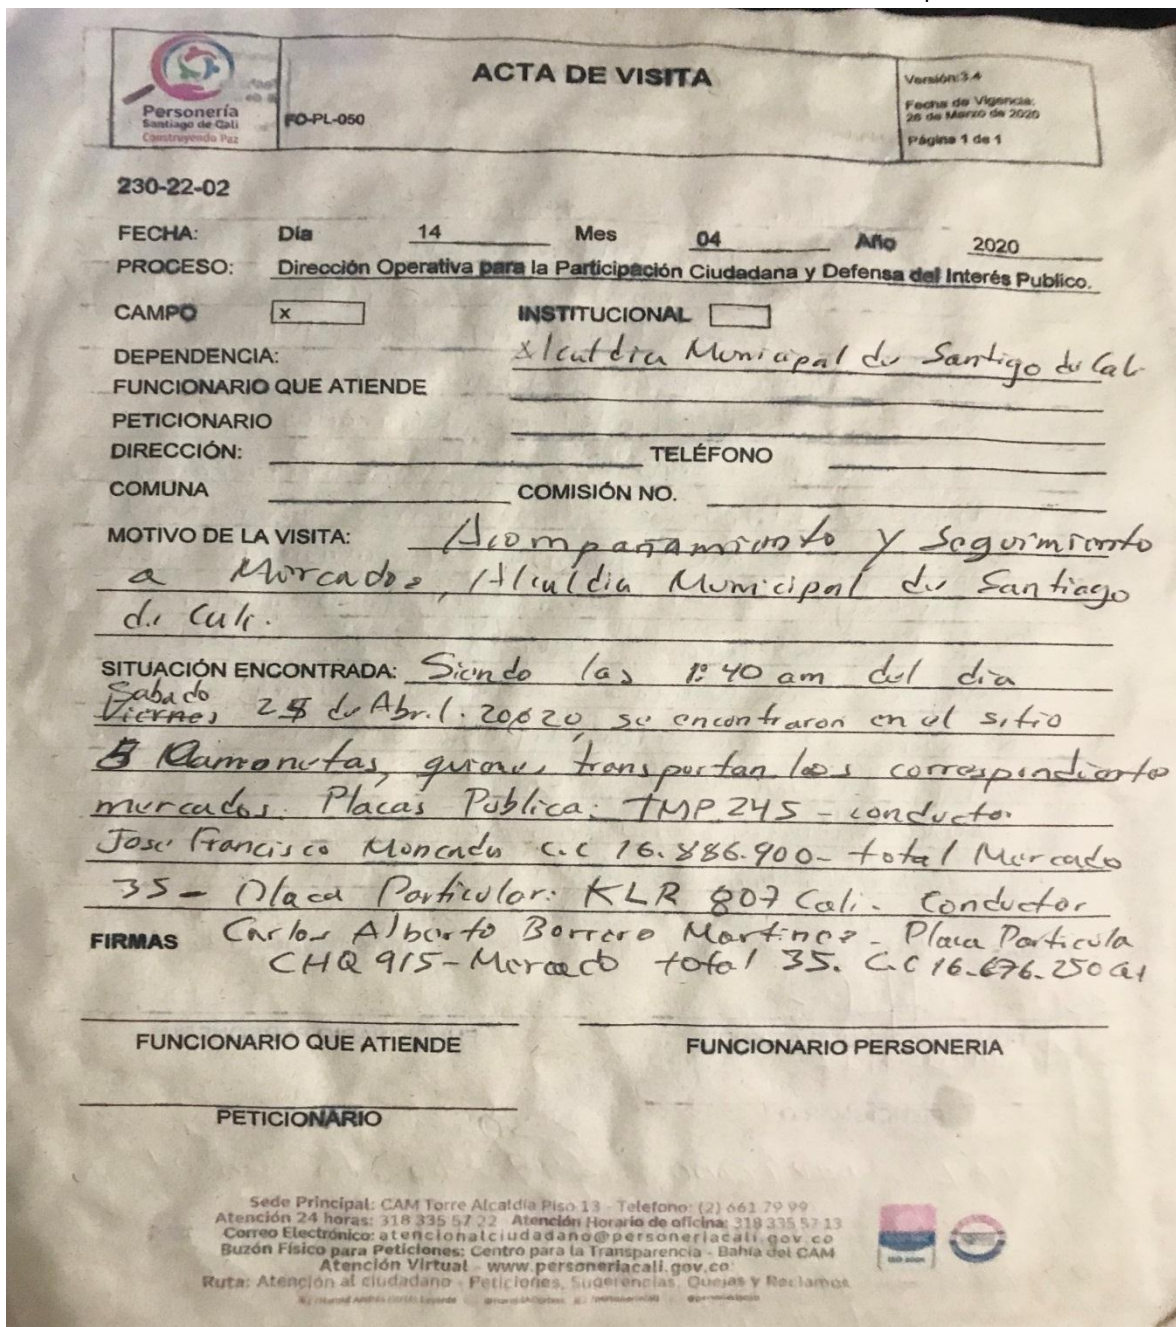 Personería
Santiago de Cali
Construyendo Paz
FO-PL-050
ACTA DE VISITA
Versión:3.4
Fecha de Vigencia:
26 de Marzo de 2020
Página 1 de 1
230-22-02
FECHA: Día 14 Mes 04 Año 2020
PROCESO: Dirección Operativa para la Participación Ciudadana y Defensa del Interés Publico.
CAMPO x INSTITUCIONAL
DEPENDENCIA: Alcaldia Municipal de Santigo de Cali
FUNCIONARIO QUE ATIENDE
PETICIONARIO
DIRECCIÓN: TELÉFONO
COMUNA COMISIÓN NO.
MOTIVO DE LA VISITA: Acompañamiento y Seguimiento
a Mercados, Alcaldia Municipal de Santiago
de Cali.
SITUACIÓN ENCONTRADA: Siendo las 1:40 am del dia
Sabado
Viernes 25 de Abril. 2020, se encontraron en el sitio
Camonetas, quienes transportan los correspondiente
mercados. Placas Pública: TMP 245 - conductor
Jose Francisco Moncada C.C 16.886.900- total Mercado
35 - Placa Particular: KLR 807 Cali. Conductor
FIRMAS Carlos Alberto Borrero Martinez - Placa Particula
CHQ 915 - Mercado total 35. C.C 16.676.250
FUNCIONARIO QUE ATIENDE FUNCIONARIO PERSONERIA
PETICIONARIO
Sede Principal: CAM Torre Alcaldía Piso 13 - Telefono: (2) 661 79 99
Atención 24 horas: 318 335 57 22 Atención Horario de oficina: 318 335 57 13
Correo Electrónico: atencionalciudadano@personeriacali.gov.co
Buzón Físico para Peticiones: Centro para la Transparencia - Bahía del CAM
Atención Virtual - www.personeriacali.gov.co
Ruta: Atención al ciudadano - Peticiones, Sugerencias, Quejas y Reclamos